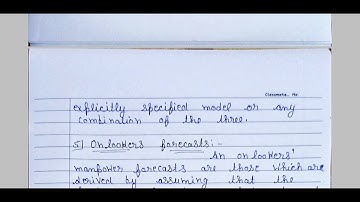 Classmate
explicitly specified model or any
combination of the three.
5) Onlookers forecasts:-
An onlookers'
manpower forecasts are those which are
derived by assuming that the